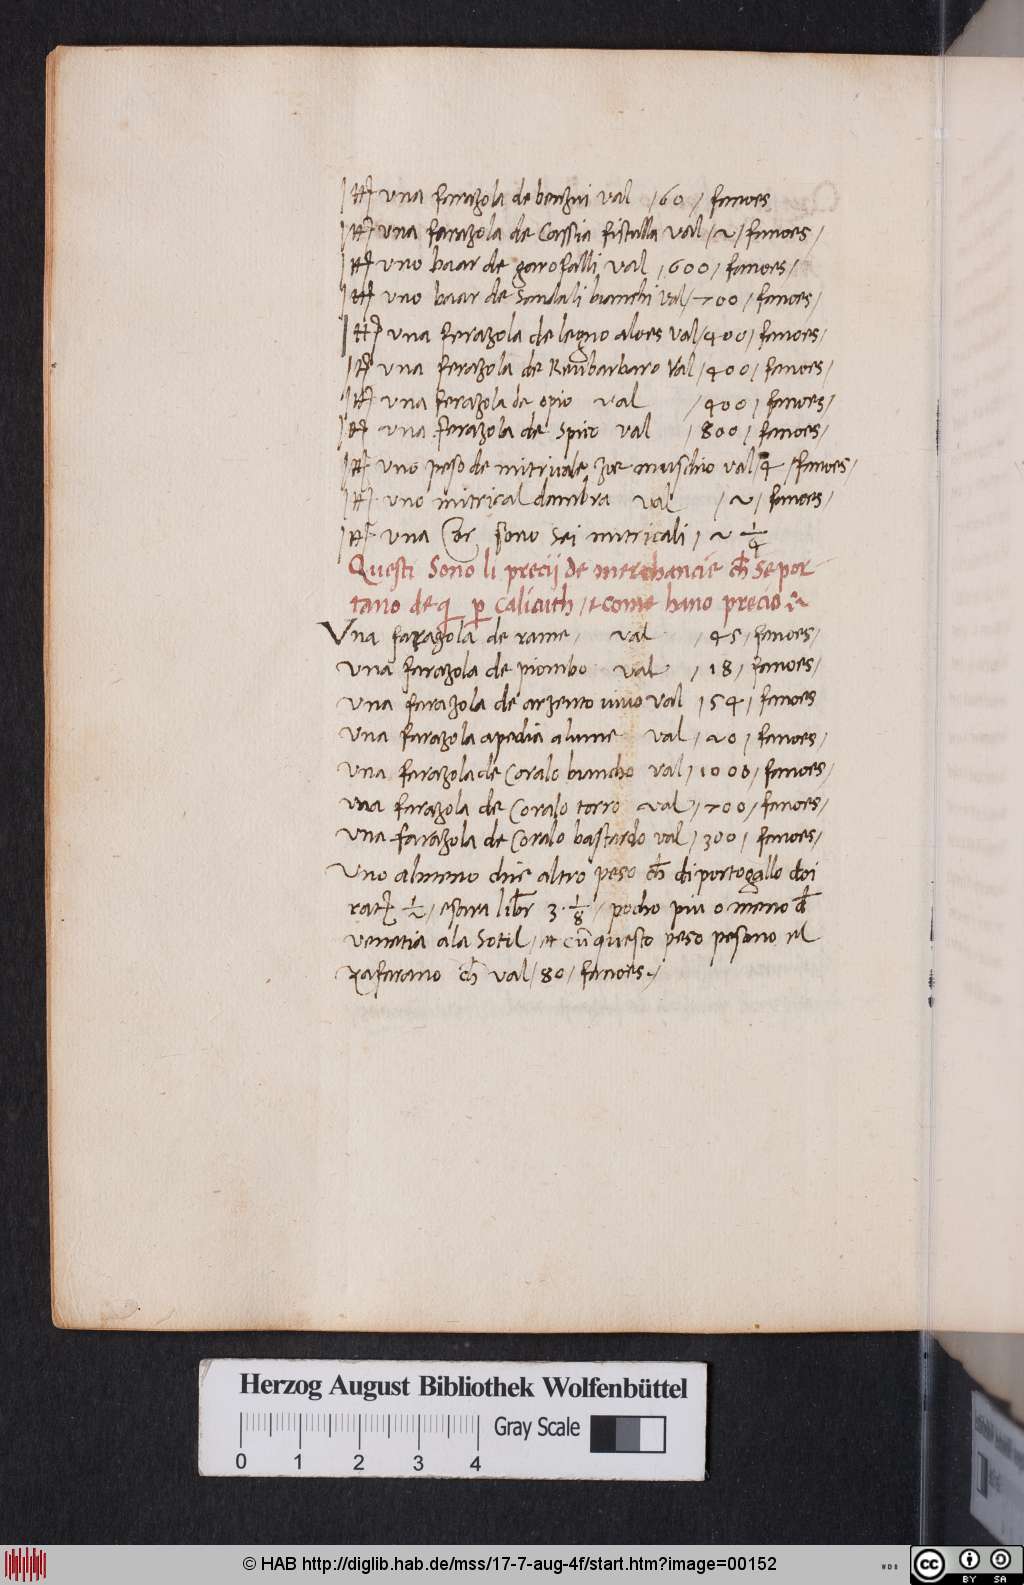 Itt una farazola de benzui val /60/ fanoes
Itt una farazola de Cassia fistulla val /2/ fanoes/
Itt uno baar de garofalli val /600/ fanoes/
Itt uno baar de Sandali bianchi val /700/ fanoes/
Itt una ferazola de legno aloes val /400/ fanoes/
Itt una ferazola de Reubarbaro Val /400/ fanoes/
Itt una ferazola de opio val /400/ fanoes/
Itt una ferazola de Spico val /800/ fanoes/
Itt uno peso de mitricale zoe muschio val /4 /fanoes/
Itt uno mitrical dambra val /2/ fanoes/
Itt una sono Sei mitricali / 2 1/4
Questi Sono li precij de merchancie ch̄ Se por
tano de q̄ p̱ Calicuth /et come hano precio
Una farazola de rame/ val /45/ fanoes/
una farazola de piombo val /18/ fanoes/
una farazola de arzento vivo val /54/ fanoes
una farazola a pedia alume val /20/ fanoes/
una farazola de Coralo biancho val /1000/ fanoes/
una farazola de Coralo torro val /700/ fanoes/
una farazola de Coralo bastardo val /300/ fanoes/
Uno almeno chie altro peso ch̄ di portogallo doi
rat 1/2 / esara libr 3 · 1/8 / pocho piu o meno de
venetia ala Sotil /et cū questo peso pesano el
zafarano ch̄ val /80/ fanoes/
Herzog August Bibliothek Wolfenbüttel
Gray Scale
0 1 2 3 4
© HAB http://diglib.hab.de/mss/17-7-aug-4f/start.htm?image=00152
WDB
cc
BY SA